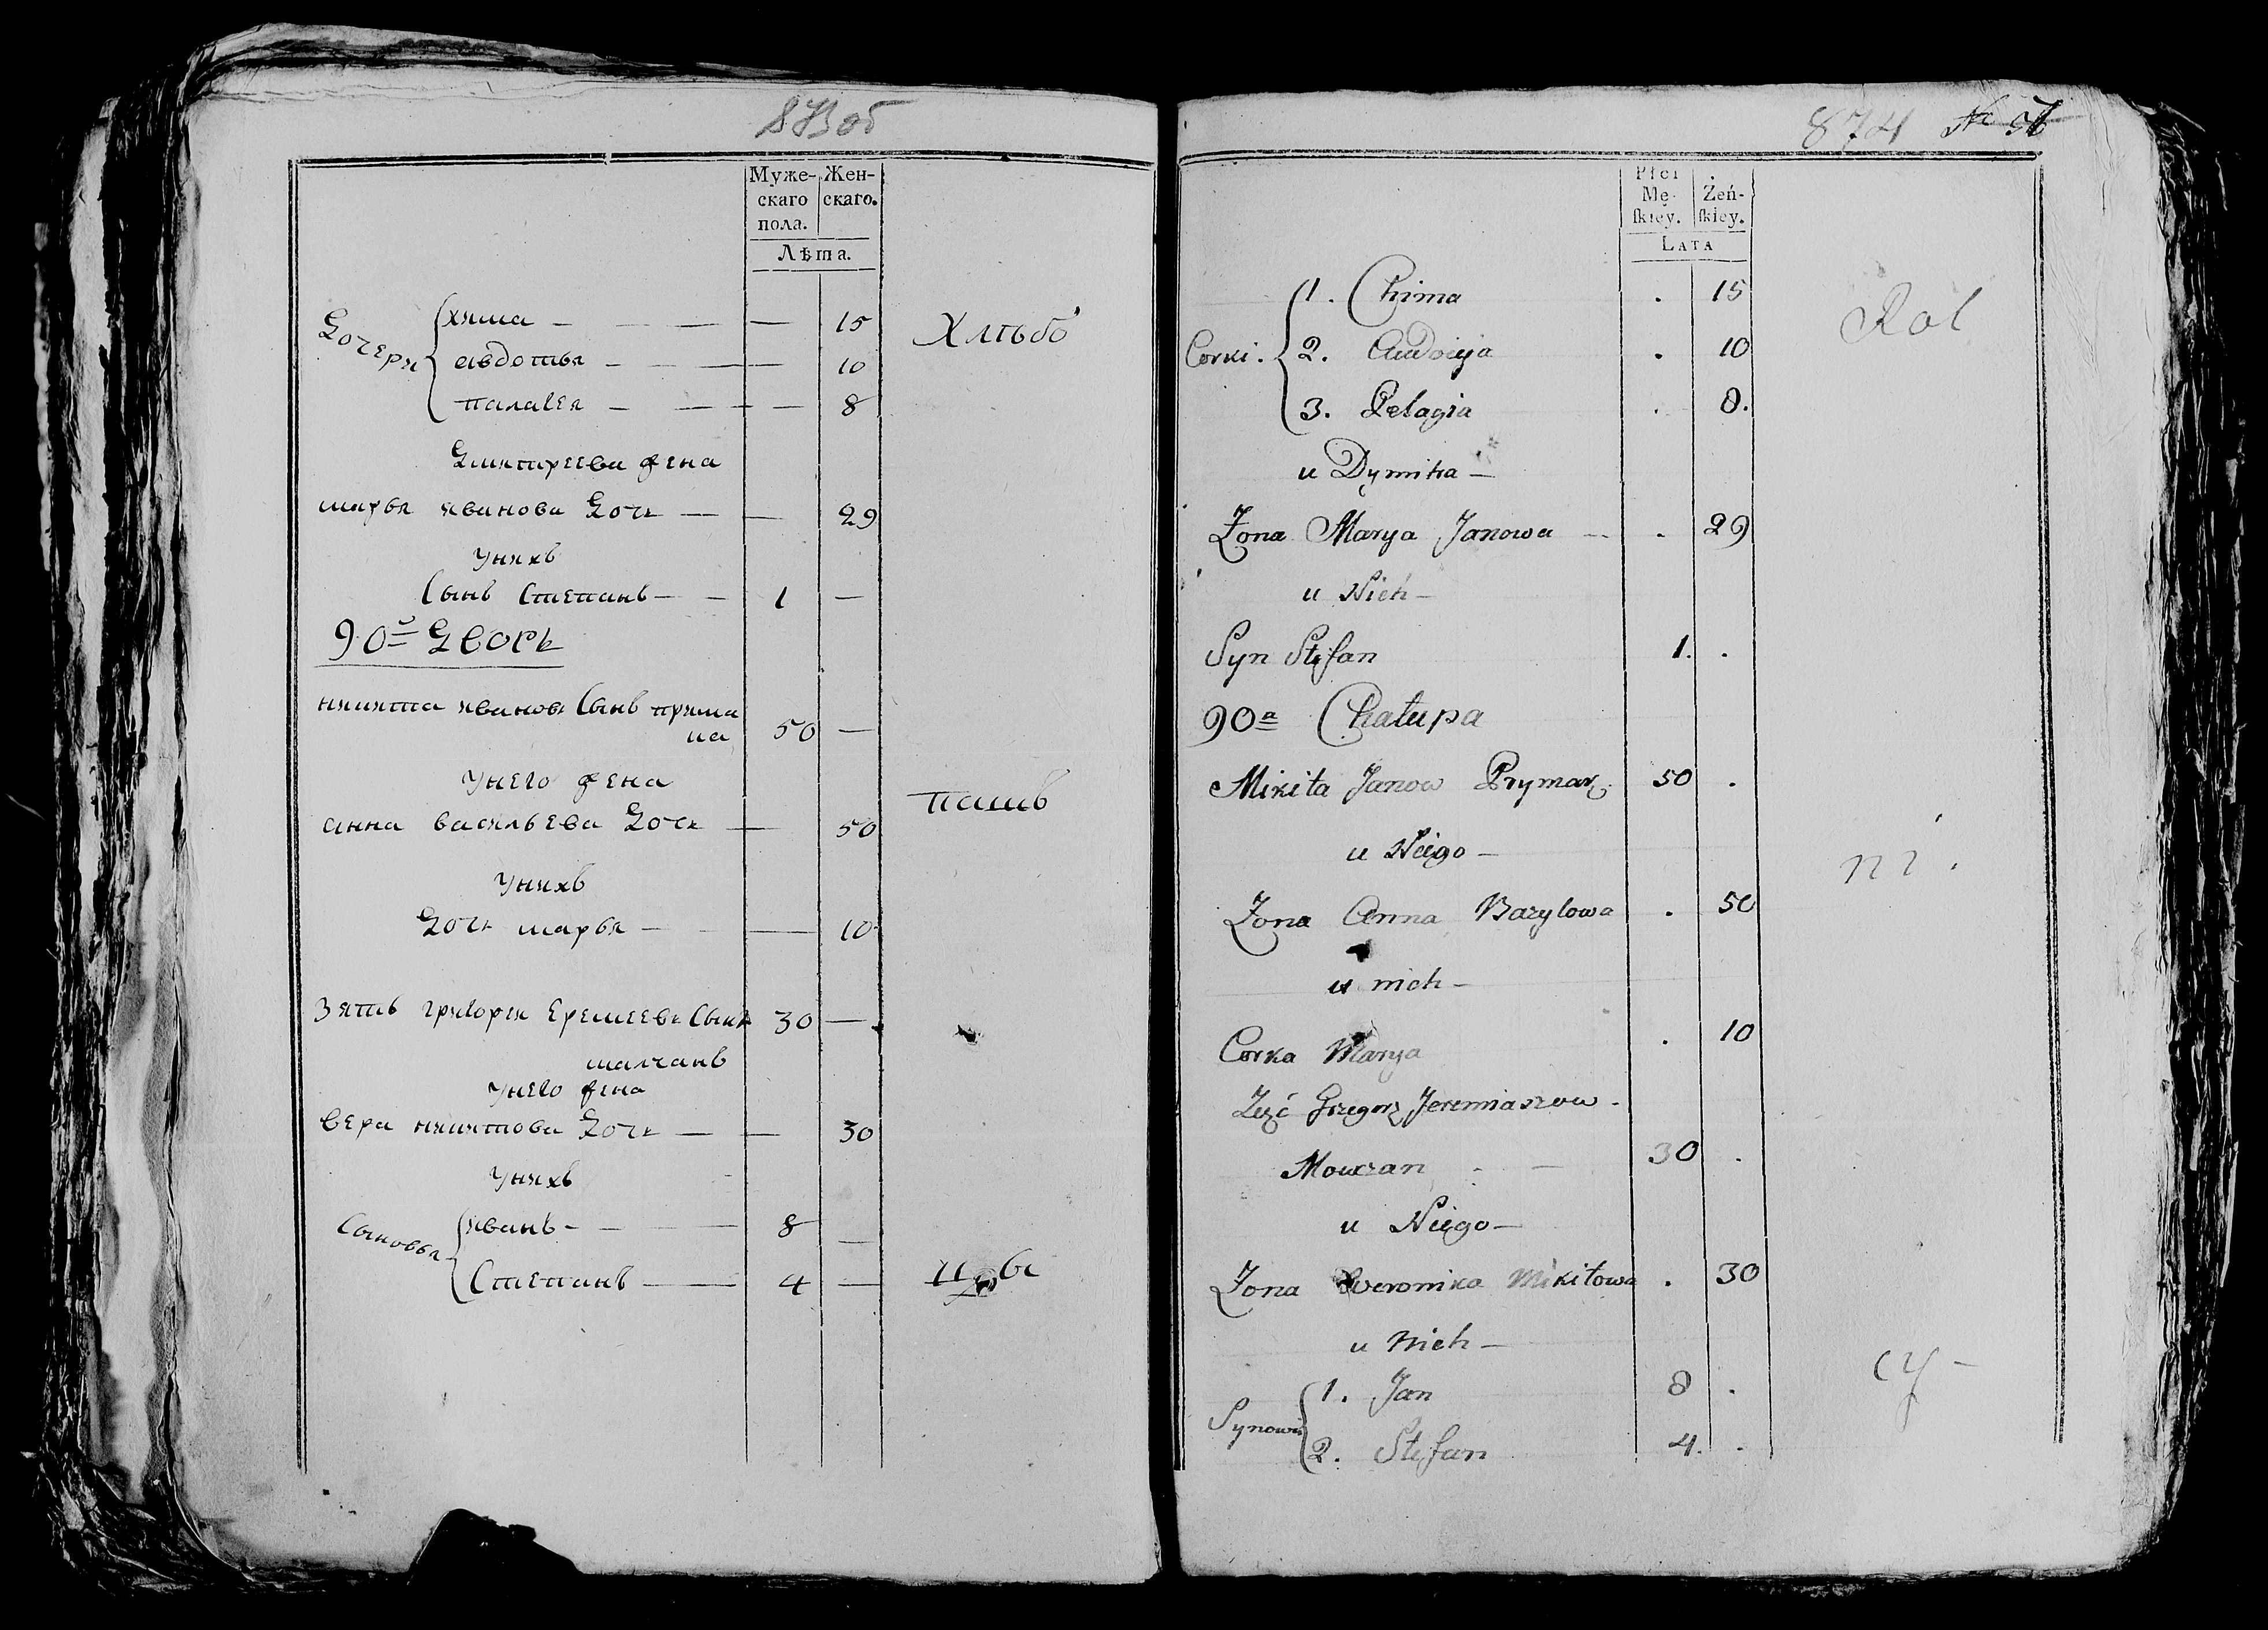 873об
Муже-
скаго
пола.
Жен-
скаго.
Лѣта.
Дочери
хима — 15
авдотья — 10
палагея — 8
Хлѣбо
дмитреева жена
марья иванова дочь — 29
у нихъ
Сынъ Степанъ — 1 —
90й дворъ
никита ивановъ Сынъ прима
ка 50 —
у него жена
анна васильева дочь — 50
пашъ
у нихъ
дочь марья — 10
Зять григори Еремеевъ Сынъ 30 —
малчанъ
у него жена
вера никитова дочь — 30
у нихъ
Сыновья
иванъ — 8 —
Степанъ — 4 —
цы
874 № 57
Płci
Mę-
ſkiey.
Żeń-
ſkiey.
LATA
Corki.
1. Chima . 15
2. Audocyja . 10
3. Pelagia . 8.
Rol
u Dymitra —
Zona Marya Janowa . 29
u Nich —
Syn Stefan 1. .
90a Chałupa
Mikita Janow Prymak 50 .
u Niego —
ni .
Zona Anna Bazylowa . 50
u nich —
Corka Marya . 10
Zęć Grzegorz Jeremiaszow -
Mowczan 30 .
u Niego —
Zona Weronika Mikitowa . 30
u Nich —
cy —
Synowie
1. Jan 8 .
2. Stefan 4. .